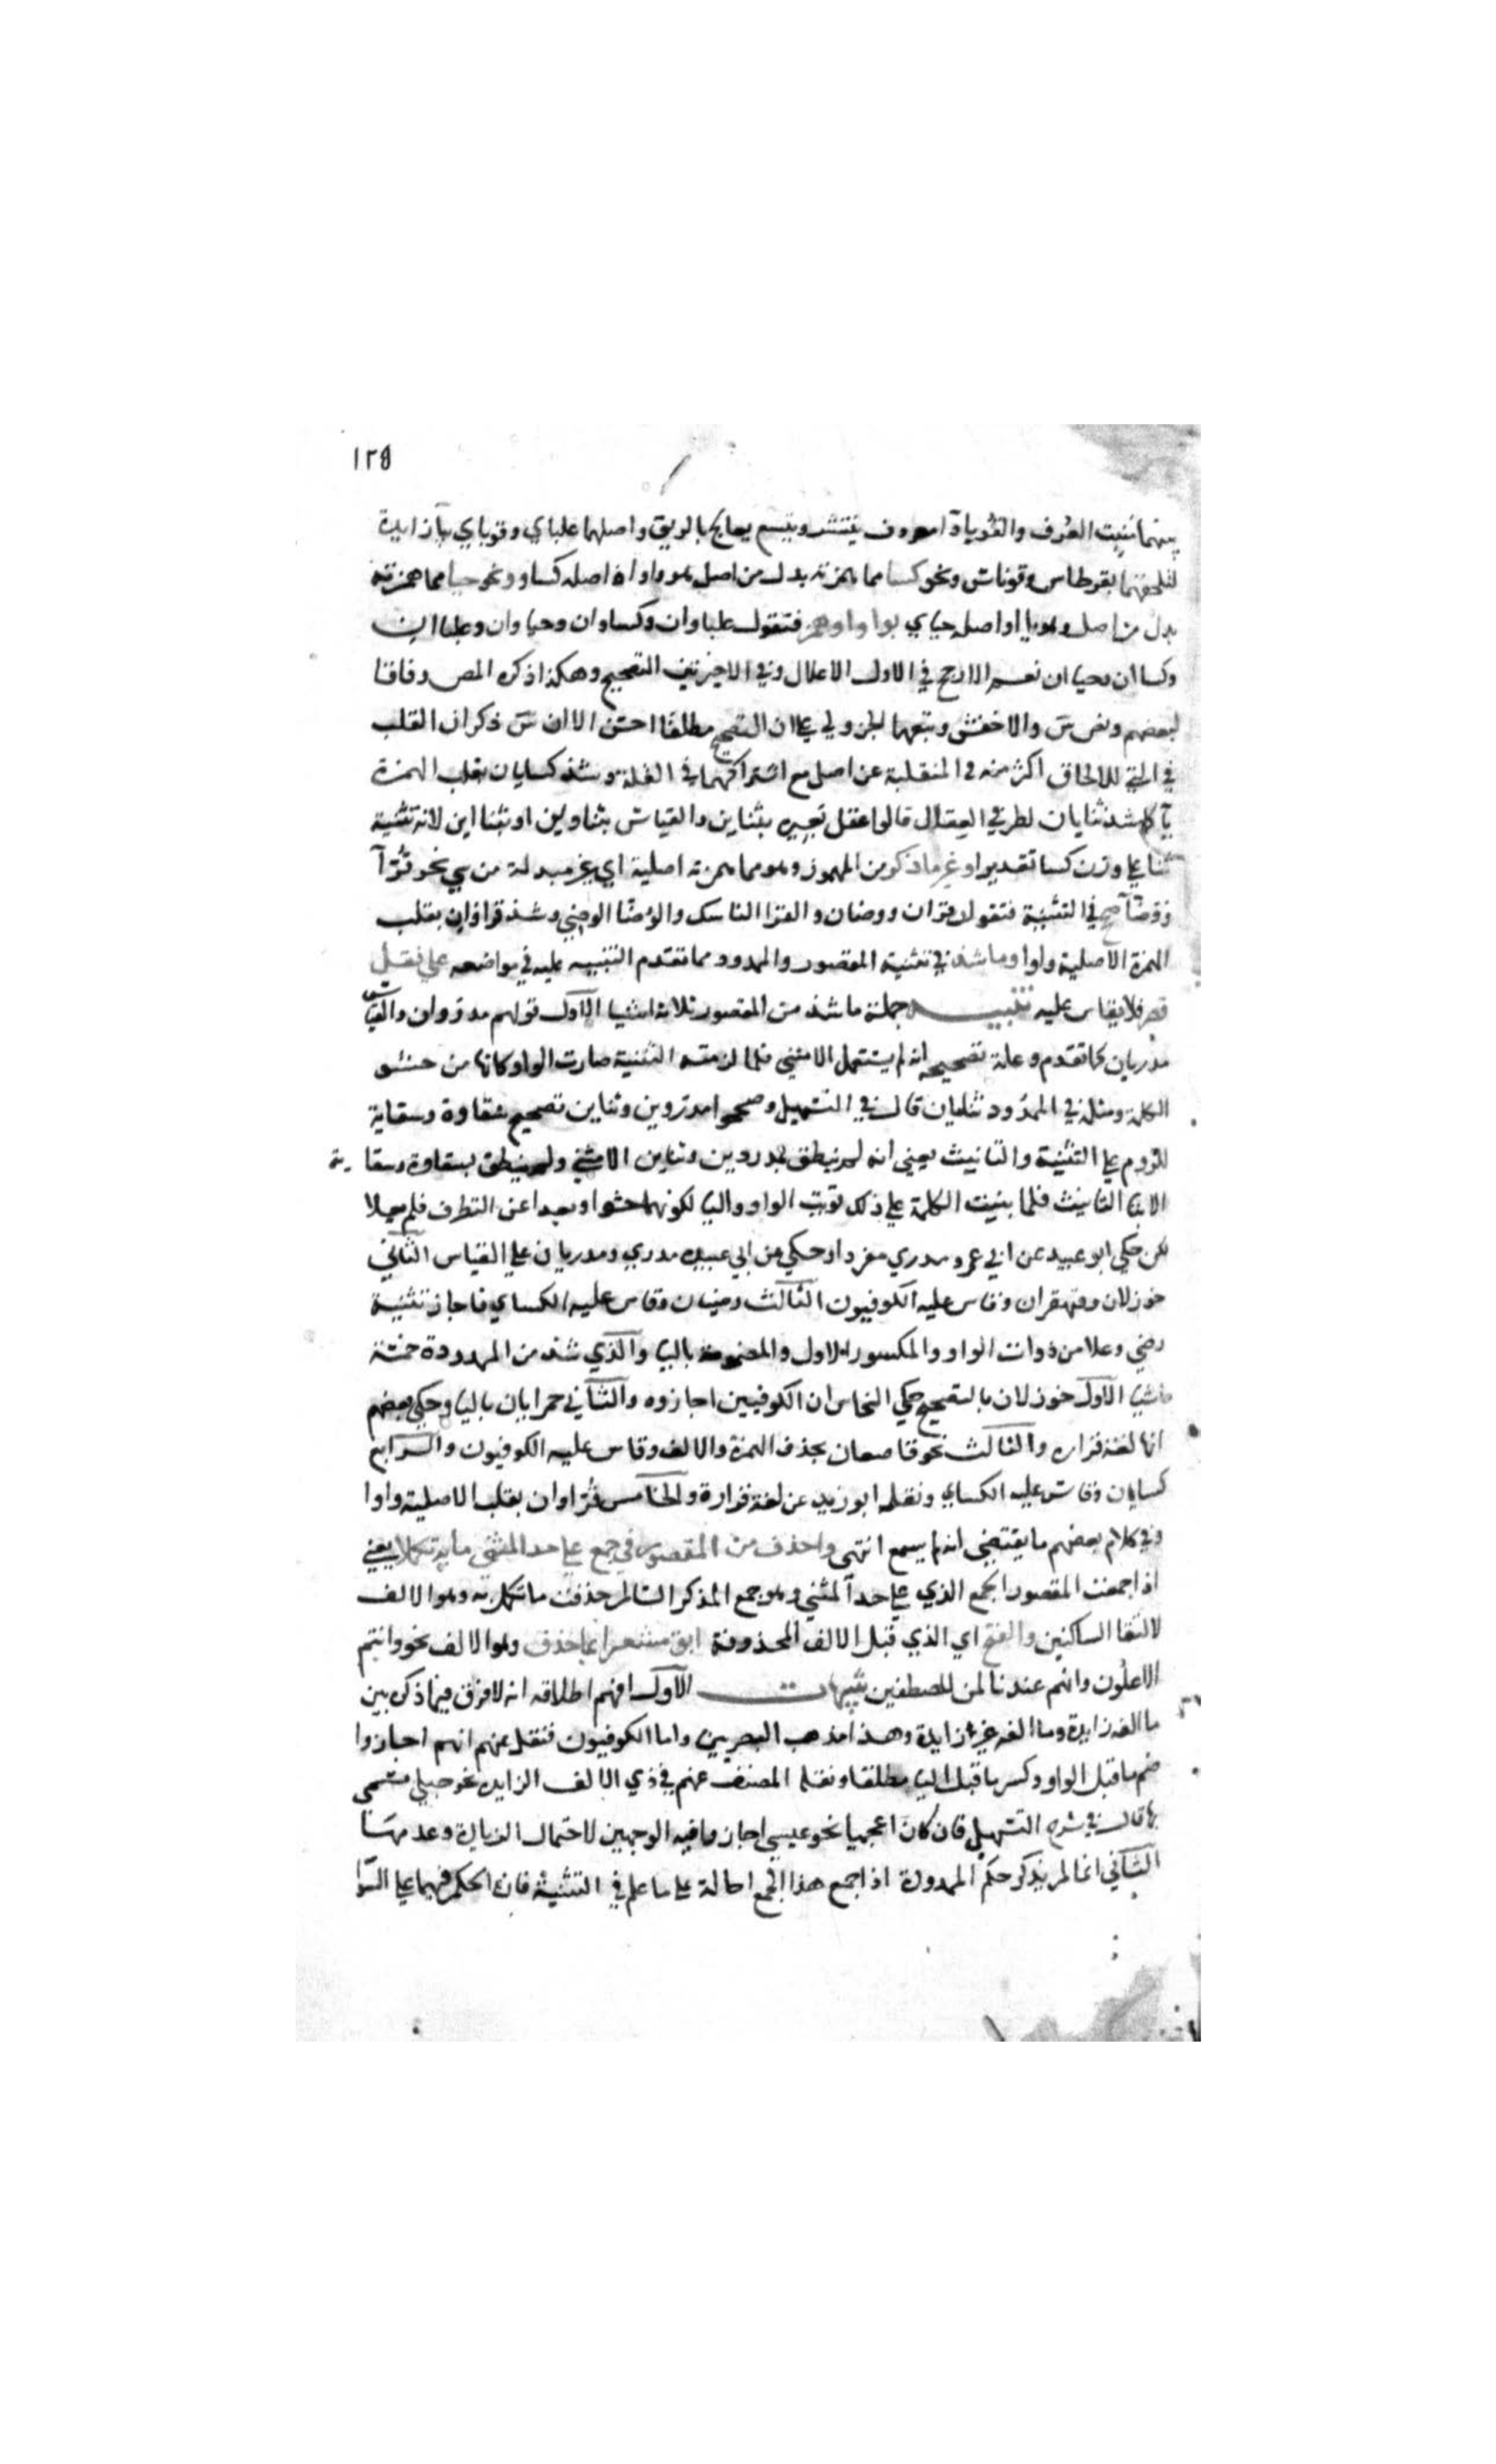 ١٢٥
بينهما ينبت العرف والقوباء داء معروف ينتشر ويتسع يعالج بالريق واصلهما علباي وقوباي بياء زايدة
لتلحقهما بقرطاس وقرناس ونحو كسا مما همزته بدل من اصل هو واو اذ اصله كساو ونحو حيا مما همزته
بدل من اصل وهو يا اذ اصله حياي بواو او همز فتقول علباوان وكساوان وحياوان وعلباان
وكساان وحياان نعم الارجح في الاول الاعلال وفي الاخيرين التصحيح وهكذا ذكره المص وفاقا
لبعضهم ونص س والاخفش وتبعهما الجزولي على ان التصحيح مطلقا احسن الا ان س ذكر ان القلب
في التي للالحاق اكثر منه في المنقلبة عن اصل مع اشتراكهما في القلة وشذ كسايان بقلب الهمزة
ياء كما شذ ثنايان لطرفي العقال قالوا عقل بعيره بثنايين والقياس بثناوين او بثنااين لانه تثنية
ثنا على وزن كسا تقديرا وغير ما ذكر من المهموز وهو مما همزته اصلية اي غير مبدلة من شي نحو قراء
ووضاء صحح في التثنية فتقول قراان ووضاان والقرا الناسك والوضا الوضي وشذ قراوان بقلب
الهمزة الاصلية واوا وما شذ في تثنية المقصور والممدود مما تقدم التنبيه عليه في مواضعه على نقل
قصر فلا يقاس عليه تنبيه جملة ما شذ من المقصور ثلاثة اشيا الاول قولهم مذروان والقياس
مذريان كما تقدم وعلة تصحيحه انه لم يستعمل الا مثنى فلما لزمته التثنية صارت الواو كانها من حشو
الكلمة ومثله في الممدود ثنايان قال في التسهيل وصححوا مذروين وثنايين تصحيح شقاوة وسقاية
للزوم على التثنية والتانيث يعني انه لم ينطق بمذروين وثنايين الا مثنى ولم ينطق بشقاوة وسقاية
الا بتا التانيث فلما بنيت الكلمة على ذلك قويت الواو واليا لكونهما حشوا وبعدا عن التطرف فلم يعلا
لكن حكى ابو عبيد عن ابي عمرو مذري مفردا وحكي عن ابي عبيدة مذري ومذريان على القياس الثاني
خوزلان وقهقران وقاس عليه الكوفيون الثالث رضيان وقاس عليه الكساي فاجاز تثنية
رضي وعلا من ذوات الواو والمكسور الاول والمضمومه باليا والذي شذ من الممدودة خمسة
اشيا الاول خوزلان بالتصحيح حكى النحاس ان الكوفيين اجازوه والثاني حمرايان باليا وحكى بعضهم
انها لغة فزاره والثالث نحو قاصعان بحذف الهمزة والالف وقاس عليه الكوفيون والرابع
كسايان وقاس عليه الكساي ونقله ابو زيد عن لغة فزارة والخامس قراوان بقلب الاصلية واوا
وفي كلام بعضهم ما يقتضي انه لم يسمع انتهى واحذف من المقصور في جمع على حد المثنى ما به تكملا يعني
اذا جمعت المقصور الجمع الذي على حد المثنى وهو جمع المذكر السالم حذفت ما تكمل به وهو الالف
لالتقا الساكنين والفتح اي الذي قبل الالف المحذوفة ابق مشعرا بما حذف وهو الالف نحو وانتم
الاعلون وانهم عندنا لمن المصطفين تنبيهات الاول افهم اطلاقه انه لا فرق فيما ذكره بين
ما الفه زايدة وما الفه غير زايدة وهذا مذهب البصريين واما الكوفيون فنقل عنهم انهم اجازوا
ضم ما قبل الواو وكسر ما قبل اليا مطلقا ونقله المصنف عنهم في ذي الالف الزايده نحو حبلى مسمى
به قال في شرح التسهيل فان كان اعجميا نحو عيسى اجازوا فيه الوجهين لاحتمال الزيادة وعدمها
الثاني انما لم يذكر حكم الممدودة اذا جمع هذا الجمع احالة على ما علم في التثنية فان الحكم فيهما على السوا